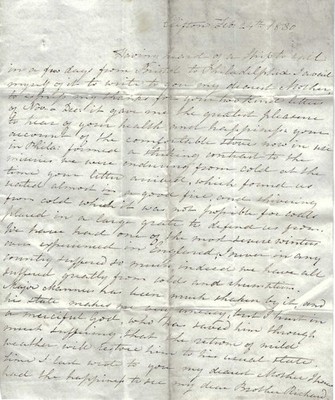 Clifton Feb 20th 1830
Having heard of a Ship to sail
in a few days from Bristol to Philadelphia I avail
myself of it to write to you my dearest Mother
for your two kind letters
of Nov. & gave me the greatest pleasure
to hear of your health and happiness your
account of the comfortable Stove now in use
in Phila. formed a striking contrast to the
we were enduring from cold at the
time your letter arrived, which found us
seated almost in a good fire, and shivering
from cold which it was not possible for coals
placed in a large grate to defend us from.
We have had one of the most severe winters
ever experienced in England, & never in any
country suffered so much, indeed we have all
suffered greatly from cold and rheumatism
Major has been much shaken by it, and
his state makes me very uneasy, but I trust
a merciful God, who has saved him through
much suffering, that the return of mild
weather will restore him to his usual state
time I last wrote to you my dearest Mother
had the happiness to see my dear Brother Richard